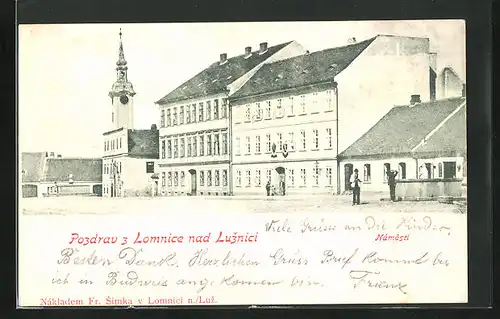 Pozdrav z Lomnice nad Lužnicí
Náměstí
Viele Grüsse an die Kinder
Besten Dank. Herzlichen Gruss Brief kommt bis
ich in Budweis angekommen bin
Franz
Nákladem Fr. Šimka v Lomnici n./Luž.